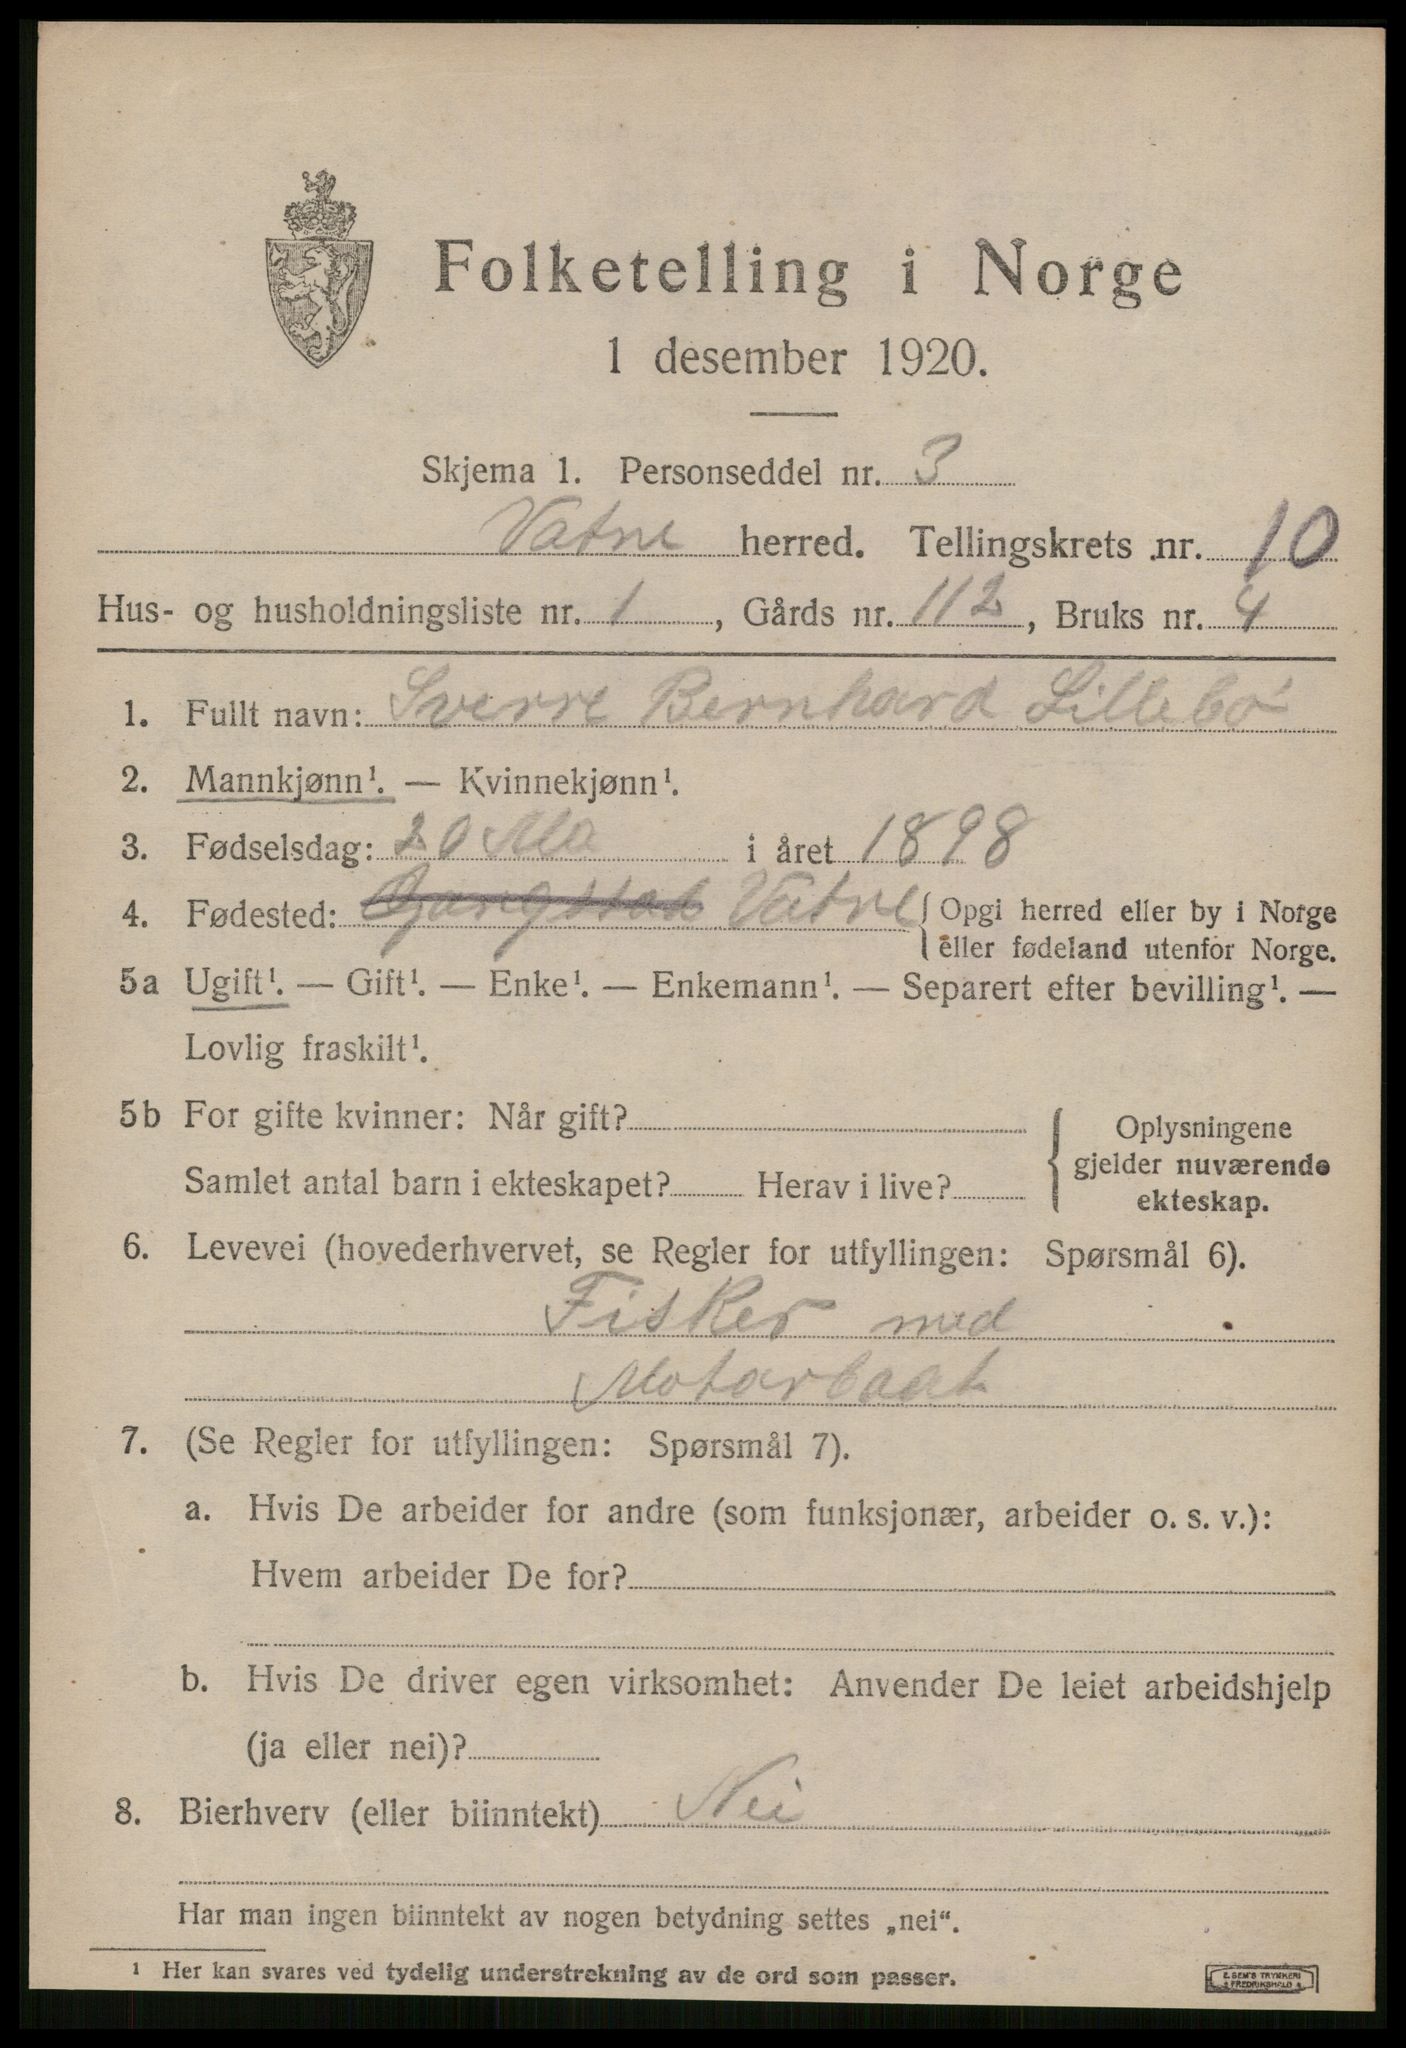 Folketelling i Norge
1 desember 1920.
Skjema 1. Personseddel nr. 3
Vatne herred. Tellingskrets nr. 10
Hus- og husholdningsliste nr. 1, Gårds nr. 112, Bruks nr. 4
1. Fullt navn: Sverre Bernhard Lillebø
2. Mannkjønn¹. — Kvinnekjønn¹.
3. Fødselsdag: 20 Ma i året 1898
4. Fødested: Gangstad Vatne { Opgi herred eller by i Norge
eller fødeland utenfor Norge.
5a Ugift¹. — Gift¹. — Enke¹. — Enkemann¹. — Separert efter bevilling¹. —
Lovlig fraskilt¹.
5b For gifte kvinner: Når gift?
Samlet antal barn i ekteskapet? Herav i live?
{ Oplysningene
gjelder nuværende
ekteskap.
6. Levevei (hovederhvervet, se Regler for utfyllingen: Spørsmål 6).
Fisker med
Motorbaat
7. (Se Regler for utfyllingen: Spørsmål 7).
a. Hvis De arbeider for andre (som funksjonær, arbeider o. s. v.):
Hvem arbeider De for?
b. Hvis De driver egen virksomhet: Anvender De leiet arbeidshjelp
(ja eller nei)?
8. Bierhverv (eller biinntekt) Nei
Har man ingen biinntekt av nogen betydning settes „nei“.
¹ Her kan svares ved tydelig understrekning av de ord som passer.
E. SEM'S TRYKKERI
FREDRIKSHALD